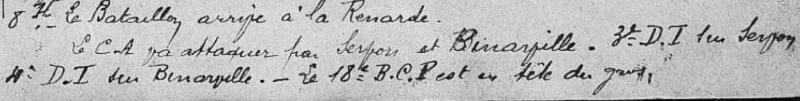 8H Le Bataillon arrive à la Renarde.
Le C.A va attaquer par Servon et Binarville. 3e D.I sur Servon
4e D.I sur Binarville. — Le 18e B.C.P est en tête du gros.